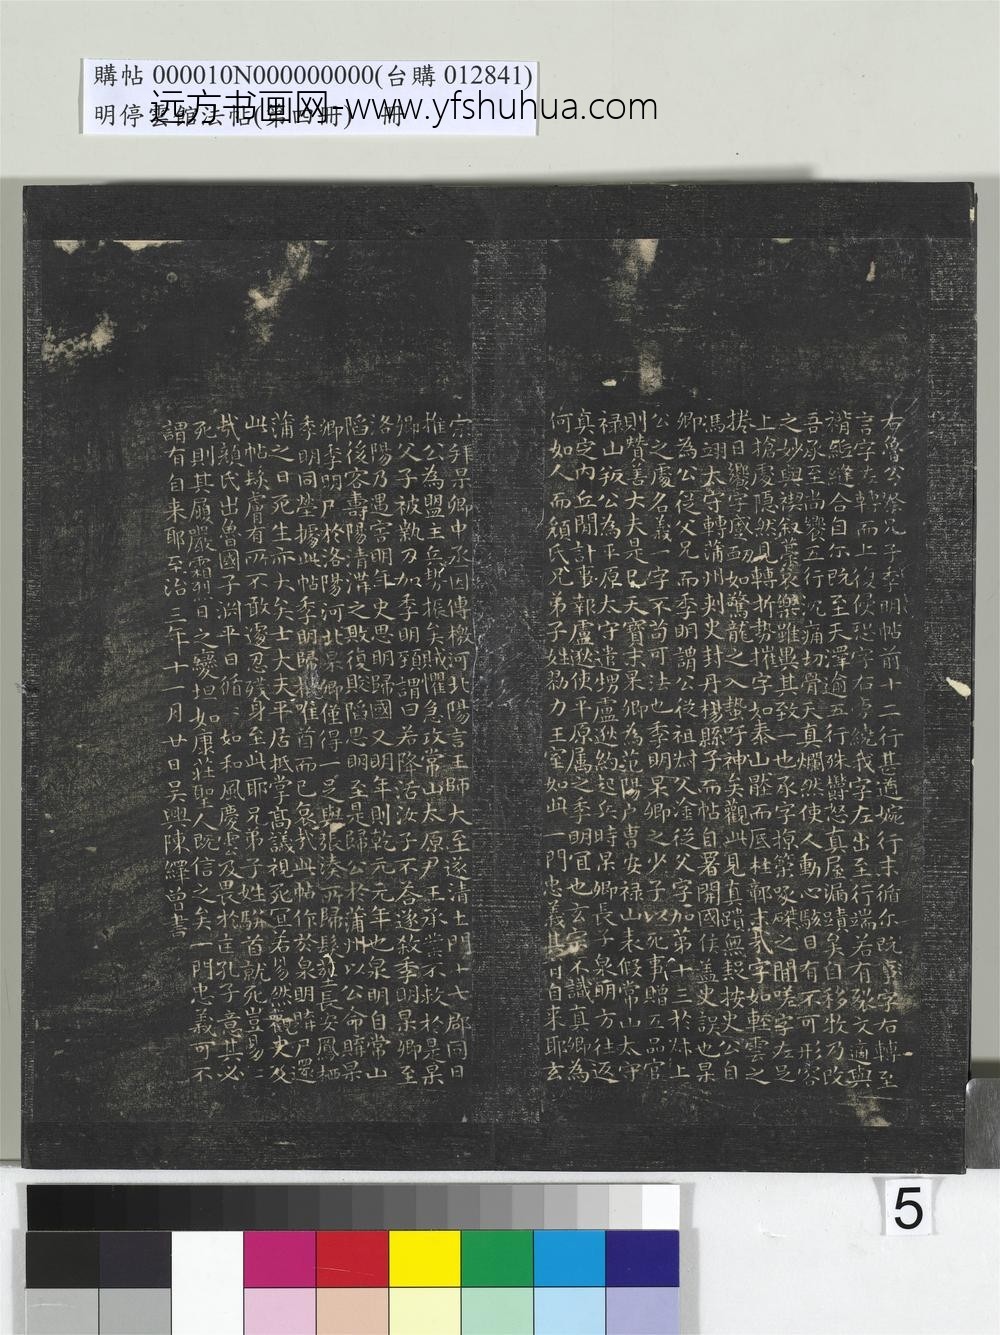 購帖 000010N000000000(台購 012841)
明停雲館法帖(第四冊) 冊
远方书画网-www.yfshuhua.com
右魯公祭兄子季明帖前十二行甚遒婉行末循尔既字右轉至
言字左轉而上復侵恐字右旁繞我字左出至行端若有裂文適與
褙紙縫合自尔既至天澤逾五行殊鬱怒真屋漏蹟矣自移牧乃改
吾承至尚饗五行沉痛切骨天真爛然使人動心駭目有不可形容
之妙與禊叙藁哀樂雖異其致一也承字掠策啄磔之間嗟字左足
上搶處隱然見轉折勢摧字如泰山壓而底柱鄣末哉字如輕雲之
捲日饗字蹙衂如驚龍之入蟄吁神矣觀此見真蹟無疑按史公自
馮翊太守轉蒲州刺史封丹楊縣子而帖自署開國侯蓋史誤也杲
卿為公從父兄而季明謂公從祖父淦從父字加第十三於叔上
公之處名義一字不苟可法也季明杲卿之少子以死事贈五品官
則贊善大夫是已天寶末杲卿為范陽戶曹安祿山表假常山太守
祿山叛公為平原太守遣甥盧逖約起兵時杲卿長子泉明方往返
真定內丘間計事報盧逖使平原属之季明宜也玄宗不識真卿為
何如人而顏氏兄弟子姓勠力王室如此一門忠義其日自来耶玄
宗拜杲卿中丞因傳檄河北陽言王師大至遂清土門十七郡同日
推公為盟主兵勢振矣賊懼急攻常山太原尹王承業不救於是杲
卿父子被執刃加季明頸謂曰若降活汝子不答遂殺季明杲卿至
洛陽乃遇害明年史思明歸國又明年則乾元元年也泉明自常山
陷後客壽陽清溝之敗復賊陷思明至是歸公於蒲州以公命購杲
卿季明尸於洛陽河北杲卿僅得一足與張湊所歸髮葬長安鳳栖
季明同塋據此帖季明歸襯唯首而已哀哉此帖作於泉明購尸還
蒲之日死生亦大矣士大夫平居抵掌髙議視死冝若易然觀史及
此帖髮膚有所不敢遽忍殘身至此耶兄弟子姓駢首就死豈易〻
哉顏氏出魯國子淵平日循〻如和風慶雲及畏於匡孔子意其必
死則其凜嚴霜烈日之變坦如康莊聖人既信之矣一門忠義可不
謂有自来耶至治三年十一月廿日吳興陳繹曾書
5